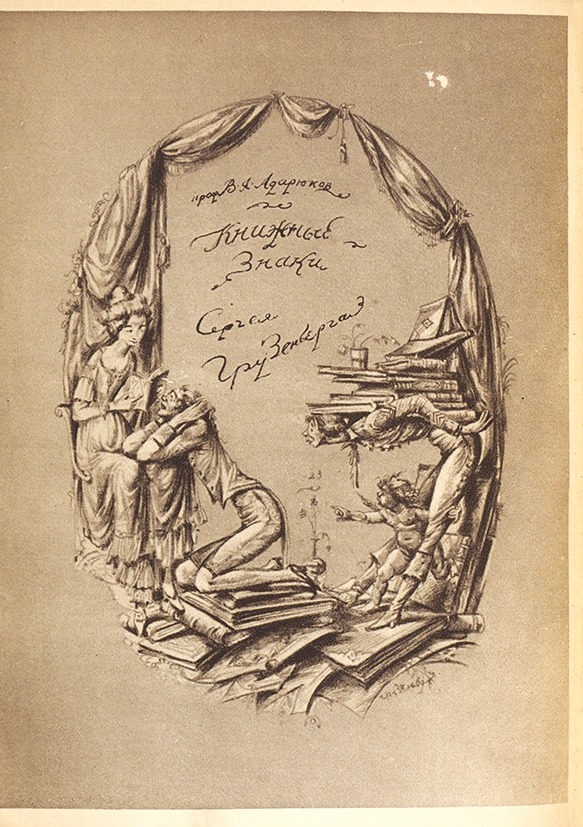 проф В. Я. Адарюков
Книжные
Знаки
Сергея
Грузенберга
23